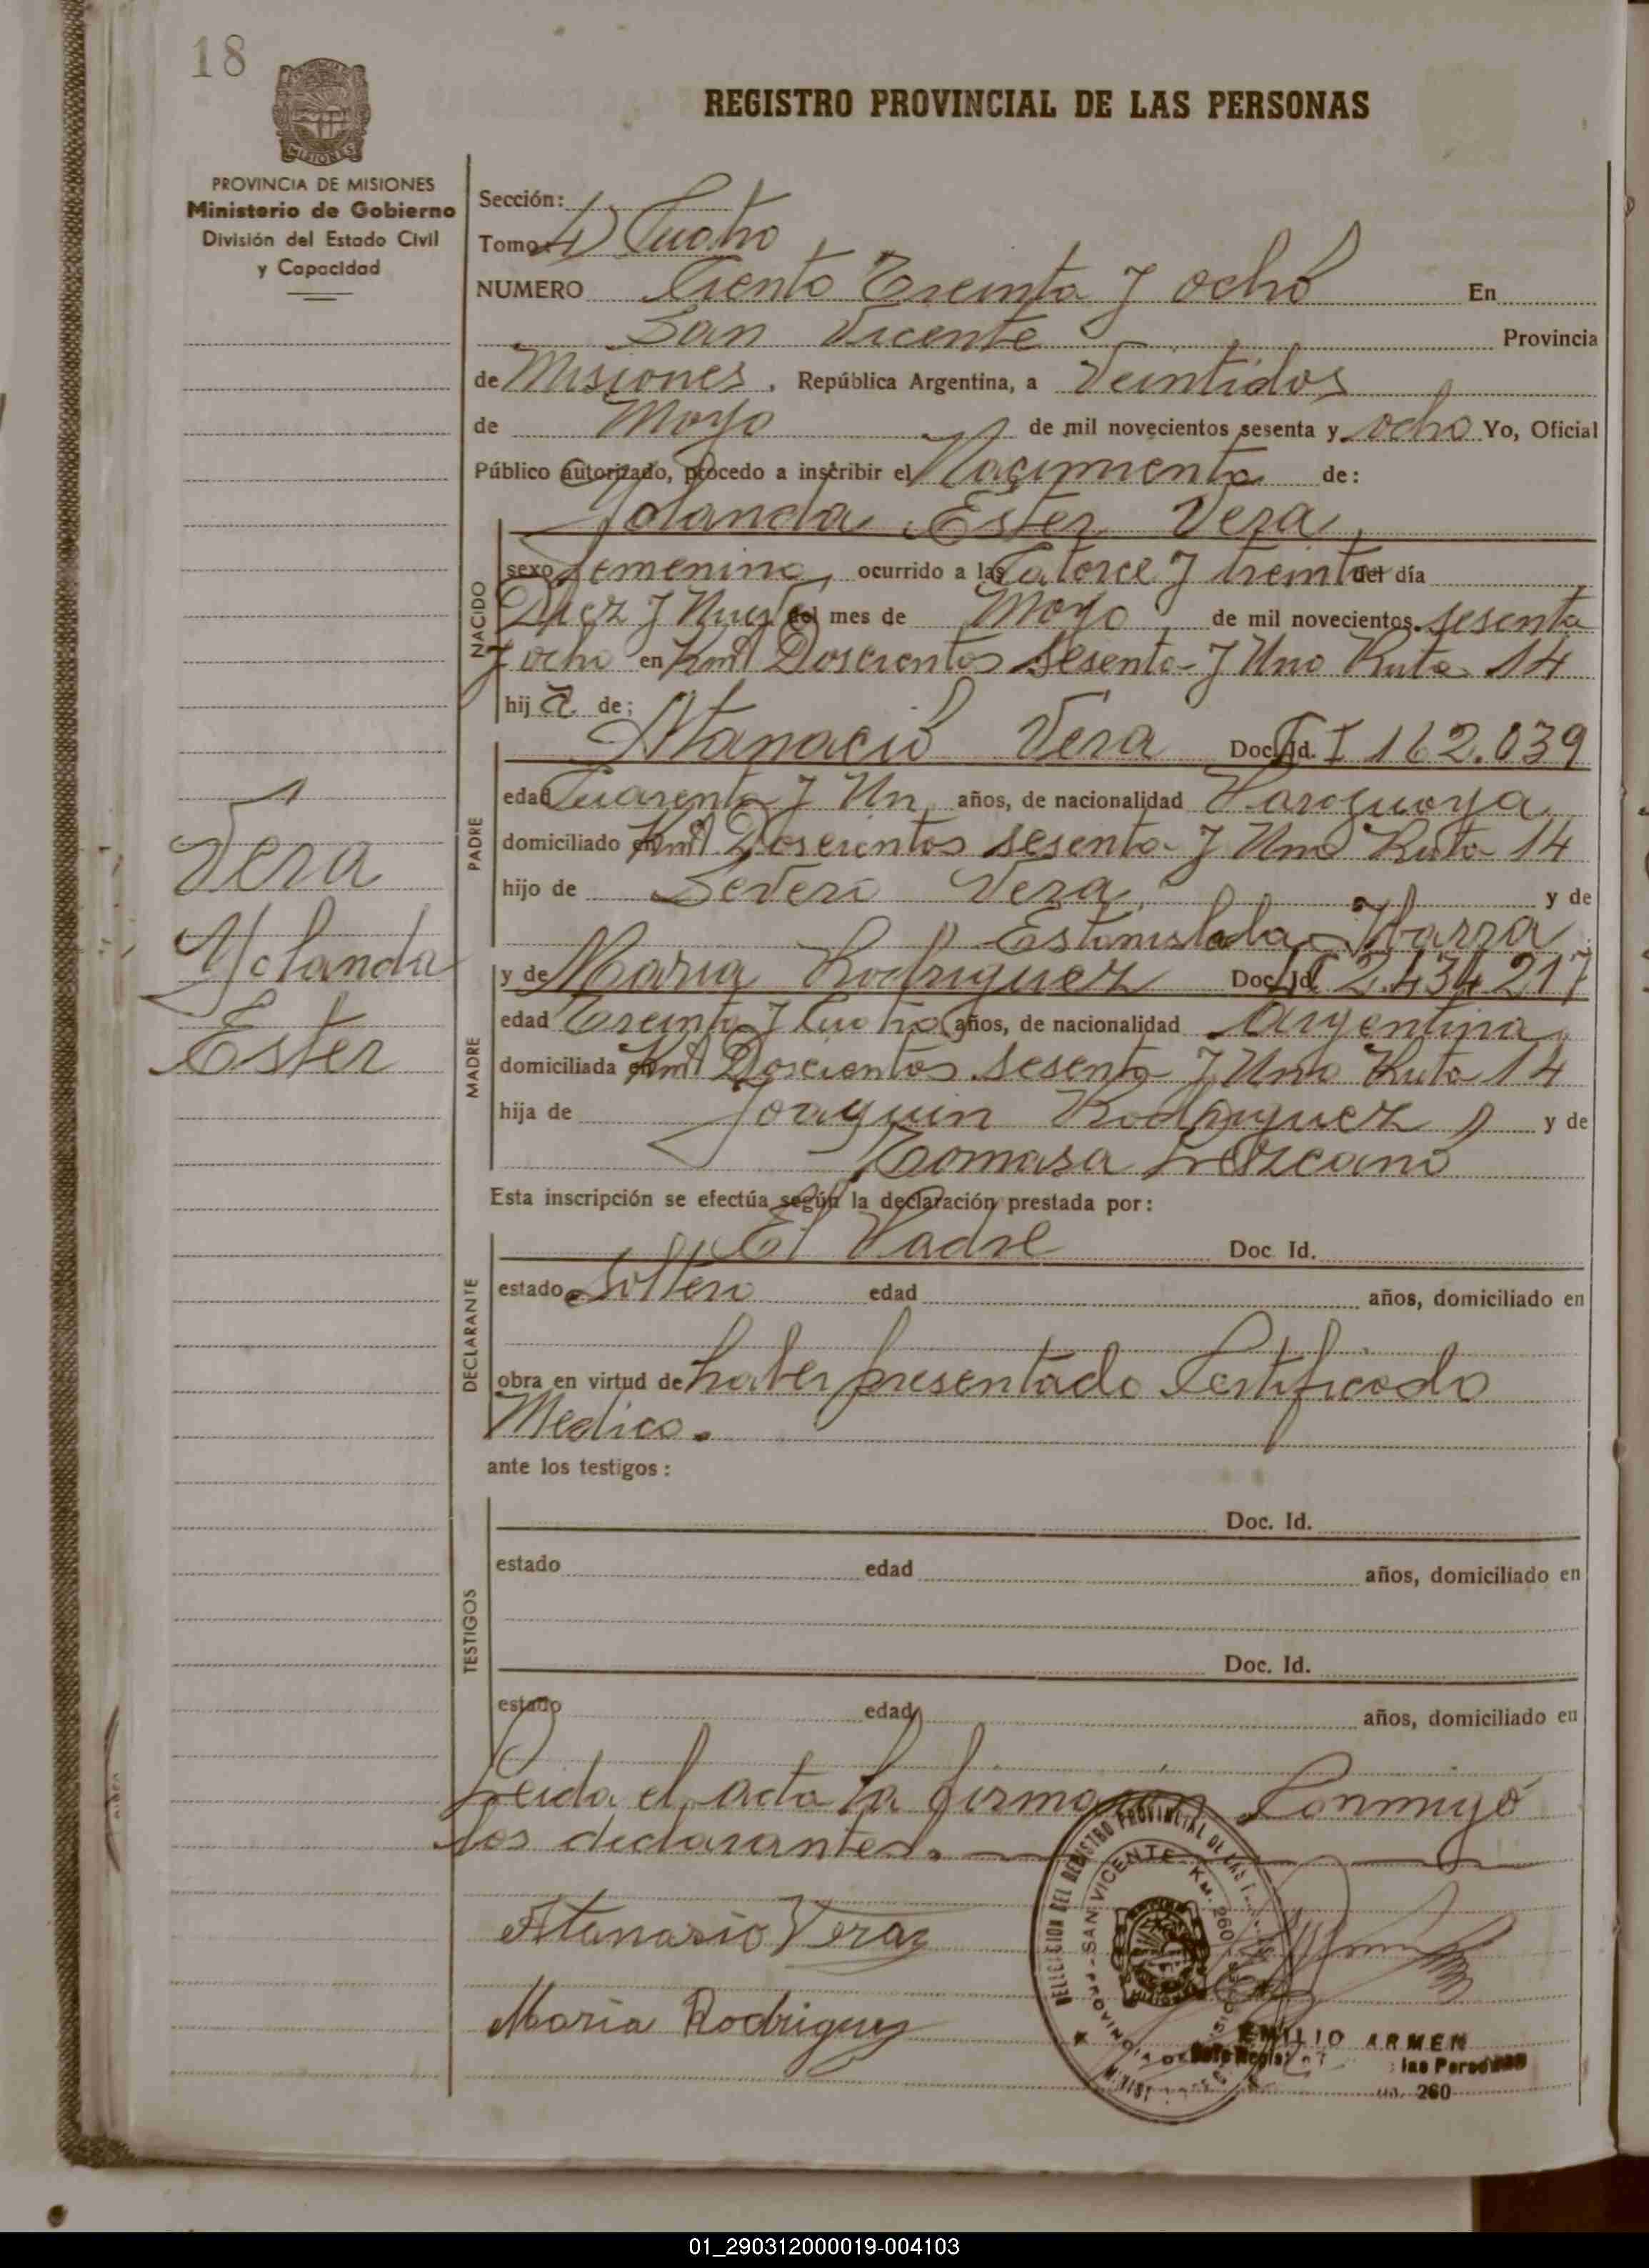 18
REGISTRO PROVINCIAL DE LAS PERSONAS
MISIONES
PROVINCIA DE MISIONES
Ministerio de Gobierno
División del Estado Civil
y Capacidad
Sección:
Tomo 4) Cuatro
NUMERO Ciento Treinta y ocho En
San Vicente Provincia
de Misiones, República Argentina, a Veintidos
de Mayo de mil novecientos sesenta y ocho Yo, Oficial
Público autorizado, procedo a inscribir el Nacimiento de:
Yolanda Ester Vera
NACIDO
sexo femenino, ocurrido a las Catorce y treinta del día
Diez y Nueve del mes de Mayo de mil novecientos sesenta
y ocho en Kmt Doscientos Sesenta y Uno Ruta 14
hij a de:
Atanacio Vera Doc. Id. CI 162.039
PADRE
edad Cuarenta y Un años, de nacionalidad Paraguaya
domiciliado en Kmt Doscientos sesenta y Uno Ruta 14
hijo de Severo Vera y de
Estanislada Ybarra
y de Maria Rodriguez Doc. Id. LC 2.434.217
MADRE
edad Treinta y Cuatro años, de nacionalidad Argentina
domiciliada en Kmt Doscientos Sesenta y Uno Ruta 14
hija de Joaquin Rodriguez y de
Tomasa Lezcano
Vera
Yolanda
Ester
Esta inscripción se efectúa según la declaración prestada por:
El Padre Doc. Id.
DECLARANTE
estado Soltero edad años, domiciliado en
obra en virtud de haber presentado Certificado
Medico.
ante los testigos:
TESTIGOS
Doc. Id.
estado edad años, domiciliado en
Doc. Id.
estado edad años, domiciliado en
Leida el acta la firmaron Conmigo
los declarantes.
Atanasio Vera
Maria Rodriguez
DELEGACION DEL REGISTRO PROVINCIAL DE LAS
SAN VICENTE - KM. 260
PROVINCIA DE
EMILIO ARMEN
las Personas
260
01_290312000019-004103